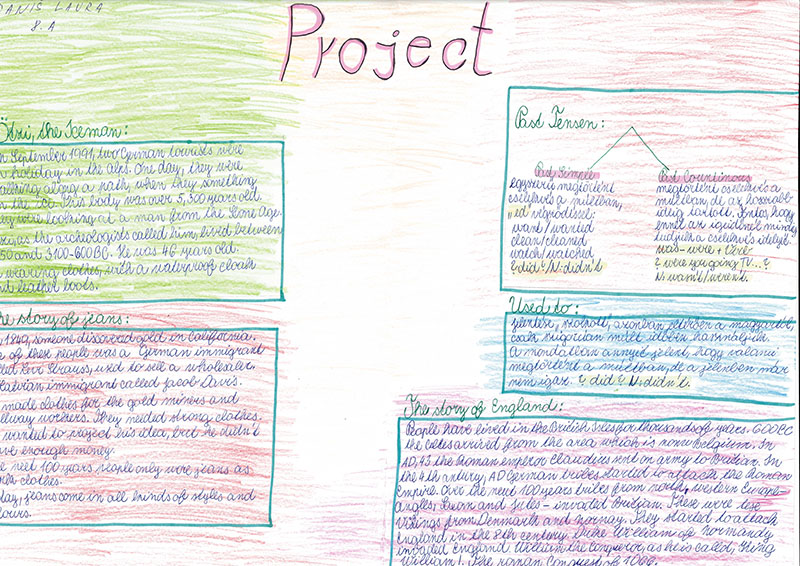 DANIS LAURA
8. A
Project
Ötzi, the Iceman:
n September 1991, two German tourists were
n holiday in the alps. One day, they were
alking along a path when they something
n the ice. This body was over 5,300 years old.
ey were looking at a man from the Stone Age.
as the archeologists called him, lived between
50 and 3100-600BC. He was 46 years old.
wearing clothes, with a waterproof cloak
nd leather boots.
he story of jeans:
1849, someone discovered gold in California.
e of these people was a German immigrant
Strauss, used to sell a wholesaler.
Latvian immigrant called Jacob Davis.
made clothes for the gold miners and
ilway workers. They needed strong clothes.
wanted to project his idea, but he didn't
ave enough money.
he next 100 years people only wore jeans as
ork clothes.
day, jeans come in all kinds of styles and
lours.
Past Tensen:
Past Simple
egyszerű megtörtént
cselekvés a múltban,
"ed" végződéssel:
want/wanted
clean/cleaned
watch/watched
? did ? N: didn't
Past Countinous
megtörtént cselekvés a
múltban, de az hosszabb
ideig tartott. Fontos, hogy
ennél az igeidőnél mindig
tudjuk a cselekvés idejét.
was-were +
? were you going TV...?
N: wasn't/weren't.
Used to:
jelentése, szokott, azonban eltérően a magyartól,
csak kizárólag múlt időben használjuk.
A mondatban annyit jelent, hogy valami
megtörtént a múltban, de a jelenben már
nem igaz. ? did ? N: didn't.
The story of England:
People have lived in the British Isles for thousands of years. 600 BC
the Celtes arrived from the area which is now Belgium. In
AD, 43 the Roman emperor Claudius sent an army to Britian. In
the 4th century, AD German tribes started to attack the Roman
Empire. Over the next 100 years tribes from north, western Europe-
Angles, Saxon and Jutes - invaded Britain. These were
Vikings from Denmark and Norway. They started to attack
England in the 8th century. Duke William of Normandy
invaded England William the Conqueror, as he is called, King
William I. The roman Conquest of 1066.